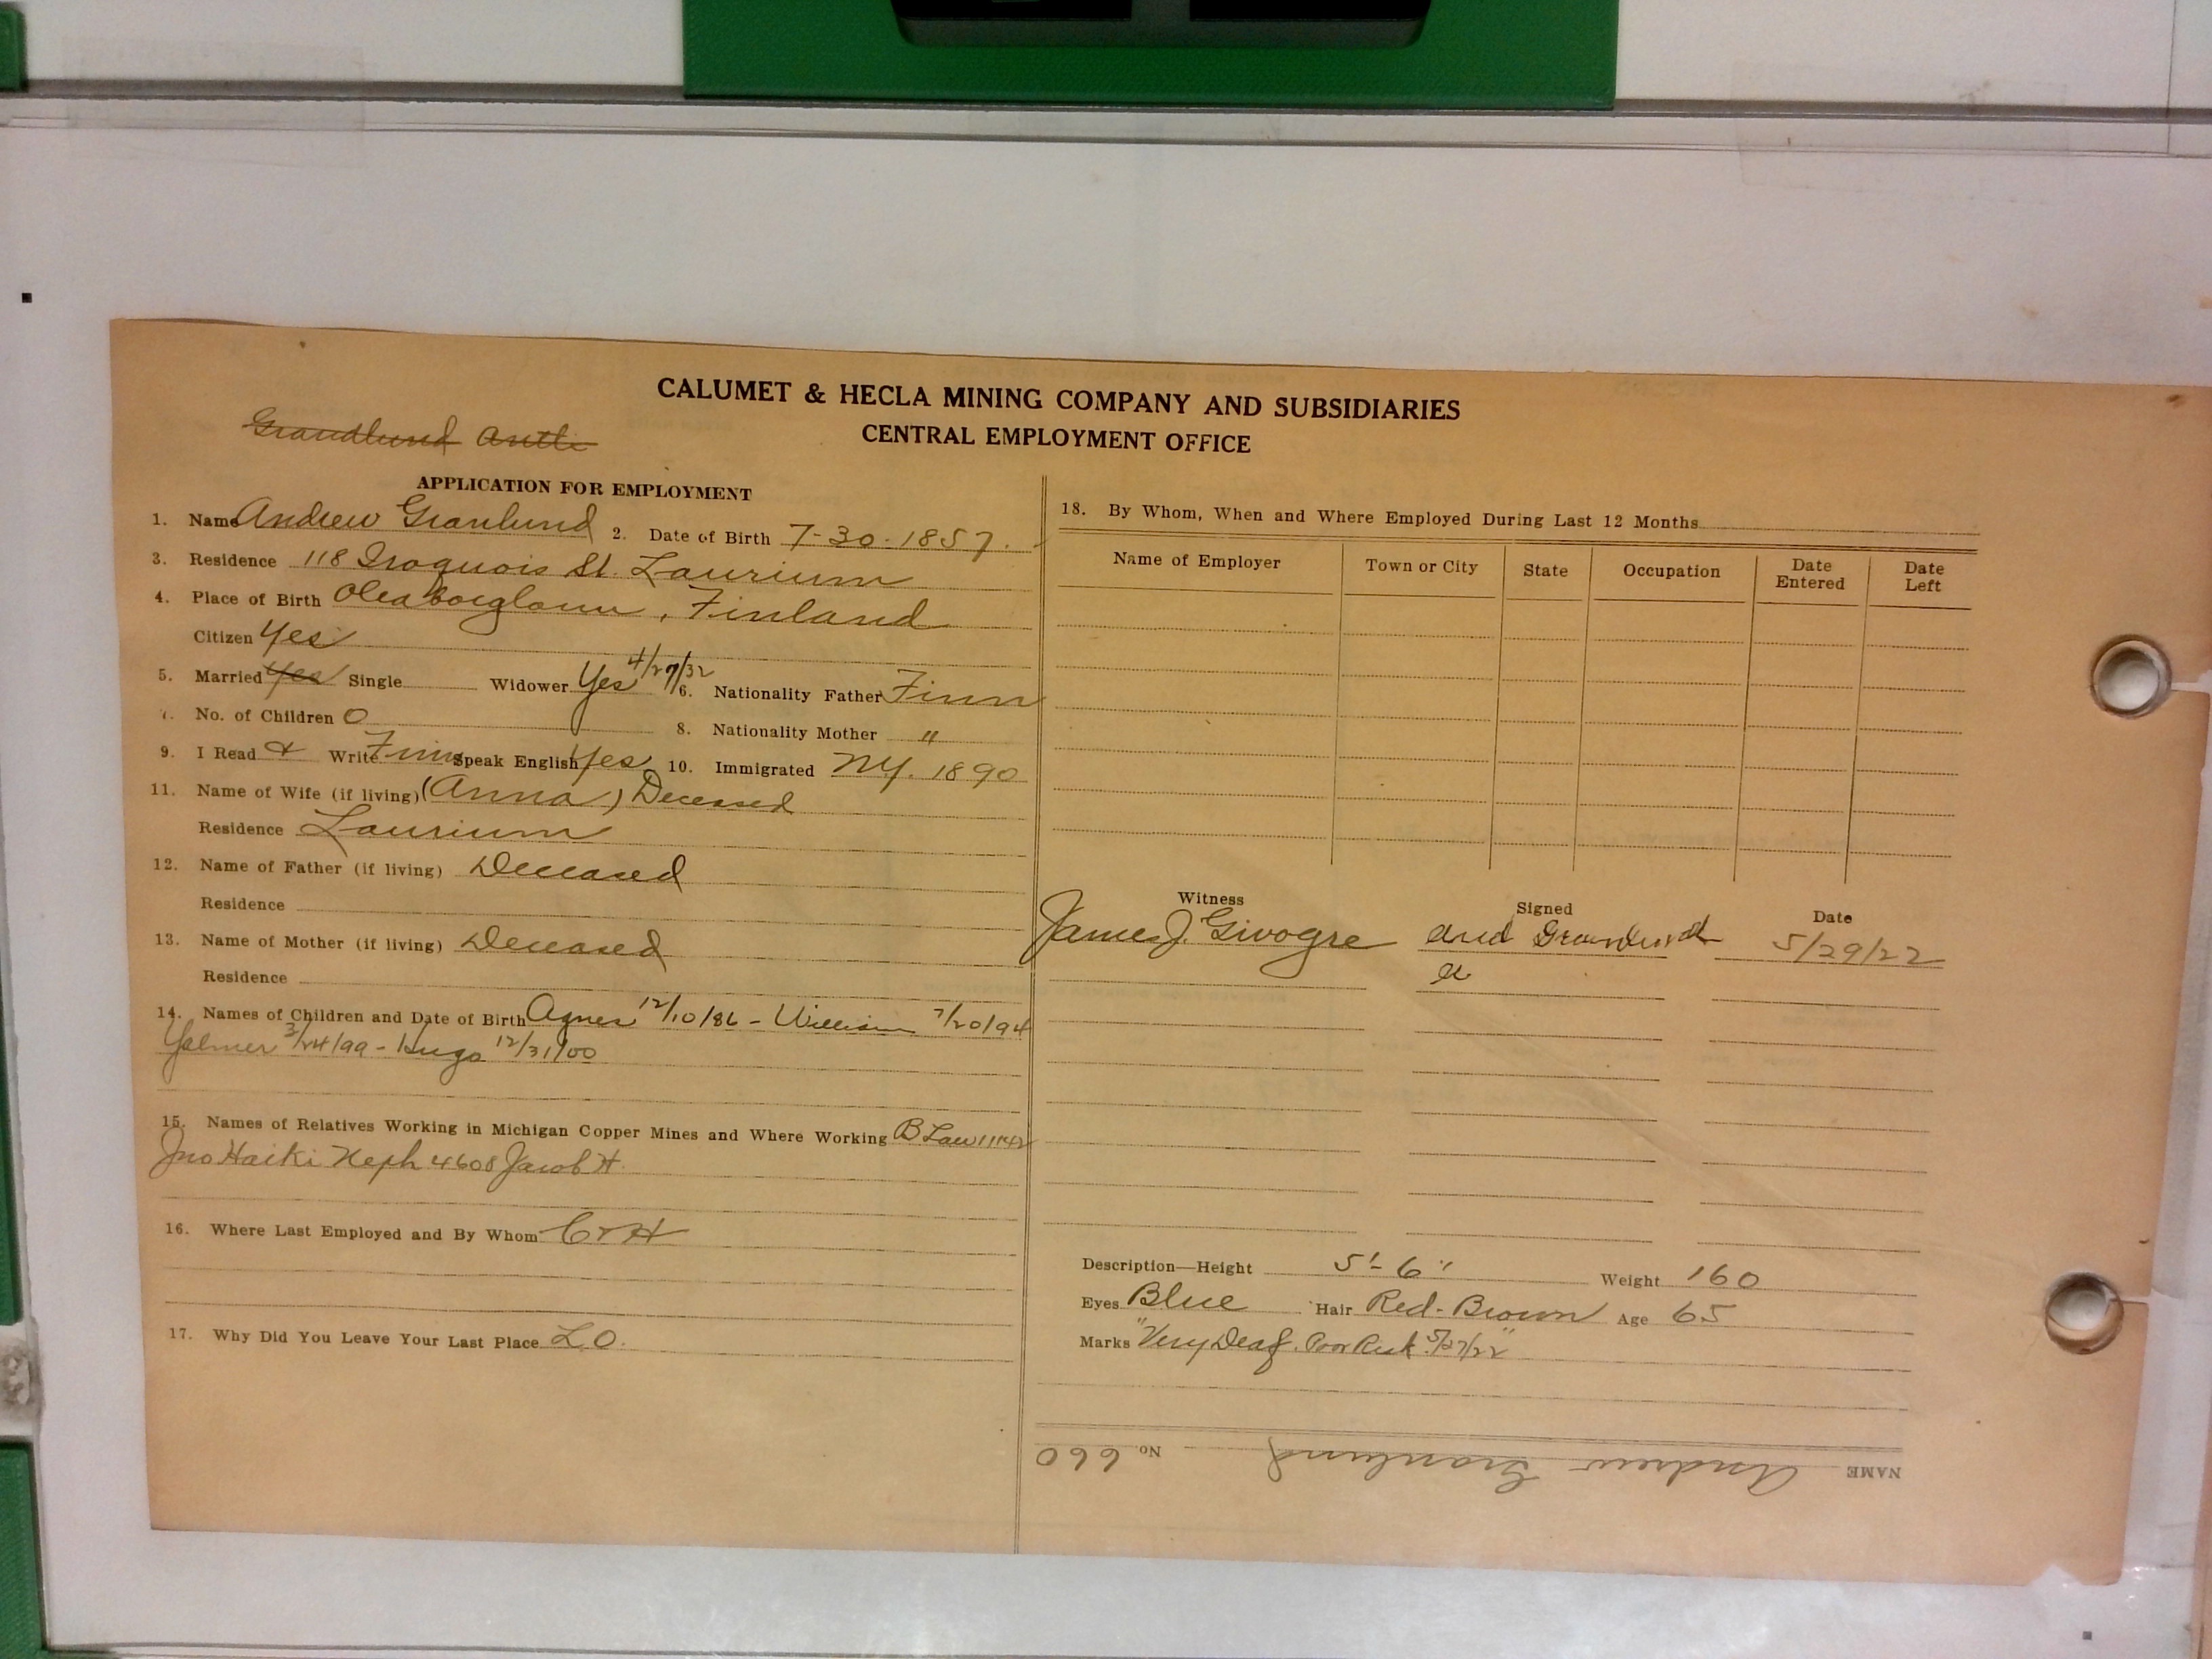 CALUMET & HECLA MINING COMPANY AND SUBSIDIARIES
CENTRAL EMPLOYMENT OFFICE
Grandlund Antti
APPLICATION FOR EMPLOYMENT
1. Name Andrew Granlund 2. Date of Birth 7-30-1857.
3. Residence 118 Iroquois St. Laurium
4. Place of Birth , Finland
Citizen Yes
5. Married Yes Single Widower Yes 4/27/32 6. Nationality Father Finn
7. No. of Children 0 8. Nationality Mother "
9. I Read & Write Finn Speak English Yes 10. Immigrated NY. 1890
11. Name of Wife (if living) (Anna) Deceased
Residence Laurium
12. Name of Father (if living) Deceased
Residence
13. Name of Mother (if living) Deceased
Residence
14. Names of Children and Date of Birth Agnes 12/10/86 - William 7/20/94
Yalmer 3/24/99 - Hugo 12/31/00
15. Names of Relatives Working in Michigan Copper Mines and Where Working B Law 11142
Jno Haiki Neph 4608 Jacob H.
16. Where Last Employed and By Whom C & H
17. Why Did You Leave Your Last Place L.O.
18. By Whom, When and Where Employed During Last 12 Months
Name of Employer Town or City State Occupation Date Entered Date Left
Witness Signed Date
James J. Givogre and 5/29/22
Description—Height 5'-6" Weight 160
Eyes Blue Hair Red-Brown Age 65
Marks "Very Deaf. Poor Risk 5/27/22"
NAME Andrew Granlund No. 660